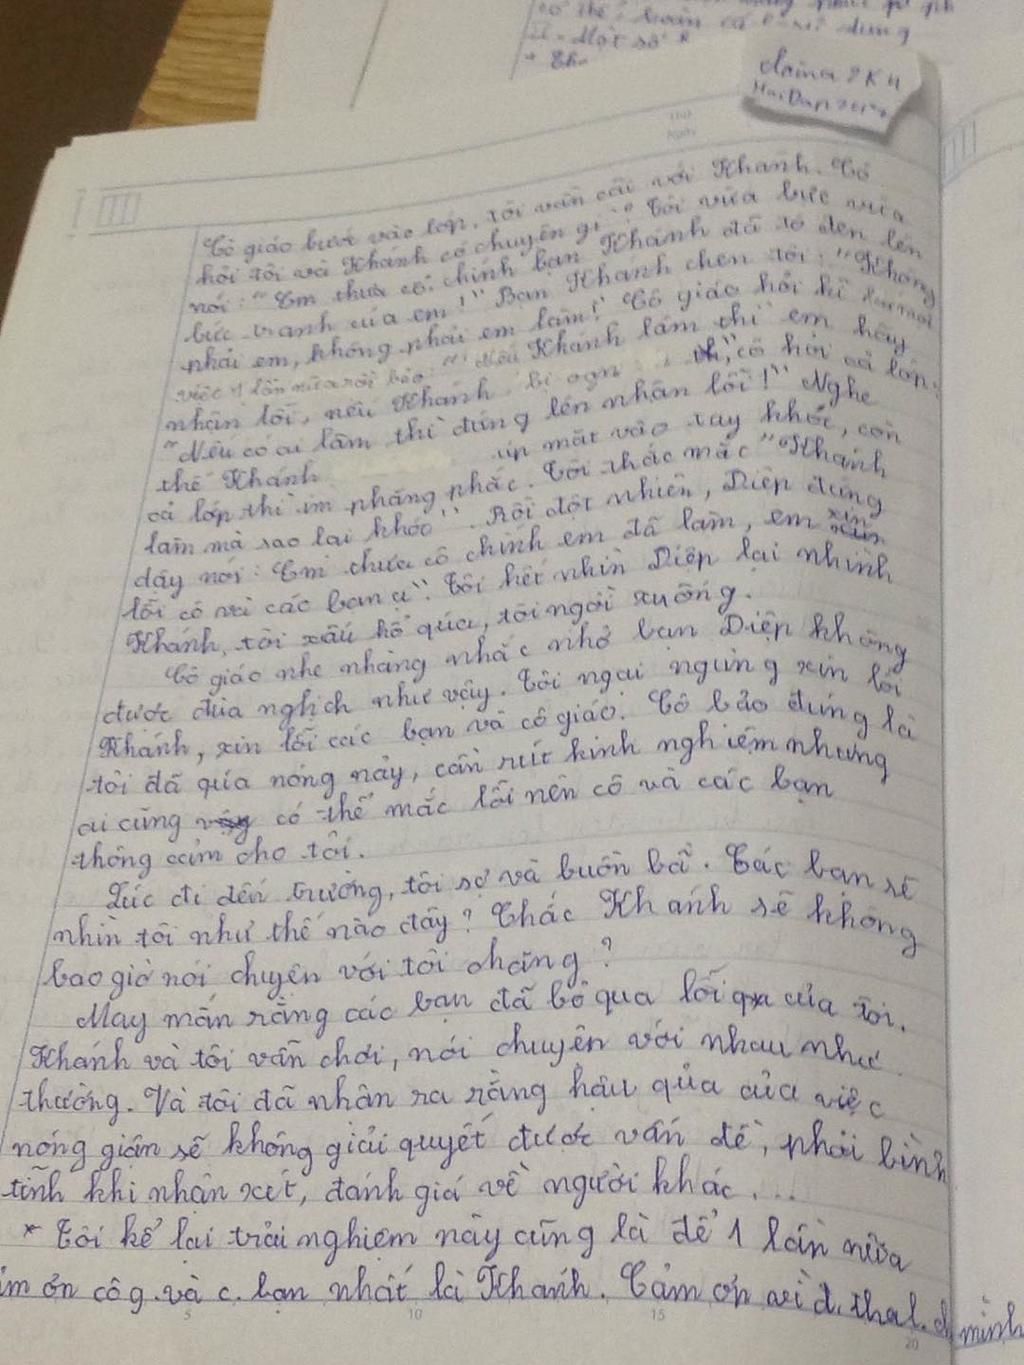 Cô giáo bước vào lớp, tôi vẫn cãi với Khánh. Cô
hỏi tôi và Khánh có chuyện gì? Tôi vừa bực vừa
nói: "Em thưa cô, chính bạn Khánh đã tô đen lên
bức tranh của em!" Bạn Khánh chen tôi: "Không
phải em, không phải em làm!" Cô giáo hỏi kĩ
việc 1 lần nữa rồi bảo: "Nếu Khánh làm thì em hãy
nhận lỗi, nếu Khánh bị oan thì," cô hỏi cả lớp:
"Nếu có ai làm thì đứng lên nhận lỗi!" Nghe
thế Khánh úp mặt vào tay khóc, còn
cả lớp thì im phăng phắc. Tôi thắc mắc "Khánh
làm mà sao lại khóc". Rồi đột nhiên, Diệp đứng
dậy nói: Em thưa cô chính em đã làm, em xin
lỗi cô và các bạn ạ". Tôi hết nhìn Diệp lại nhình
Khánh, tôi xấu hổ qúa, tôi ngồi xuống.
Cô giáo nhẹ nhàng nhắc nhở bạn Diệp không
được đùa nghịch như vậy. Tôi ngại ngùng xin lỗi
Khánh, xin lỗi các bạn và cô giáo. Cô bảo đúng là
tôi đã qúa nóng nảy, cần rút kinh nghiệm nhưng
ai cũng có thể mắc lỗi nên cô và các bạn
thông cảm cho tôi.
Lúc đi đến trường, tôi sợ và buồn bã. Các bạn sẽ
nhìn tôi như thế nào đây? Chắc Khánh sẽ không
bao giờ nói chuyện với tôi chăng?
May mắn rằng các bạn đã bỏ qua lỗi của tôi.
Khánh và tôi vẫn chơi, nói chuyện với nhau như
thường. Và tôi đã nhận ra rằng hậu qủa của việc
nóng giận sẽ không giải quyết được vấn đề, phải bình
tĩnh khi nhận xét, đánh giá về người khác...
* Tôi kể lại trải nghiệm này cũng là để 1 lần nữa
ảm ơn cô g. và c. bạn nhất là Khánh. Cảm ơn vì đ. tha l. c. mình